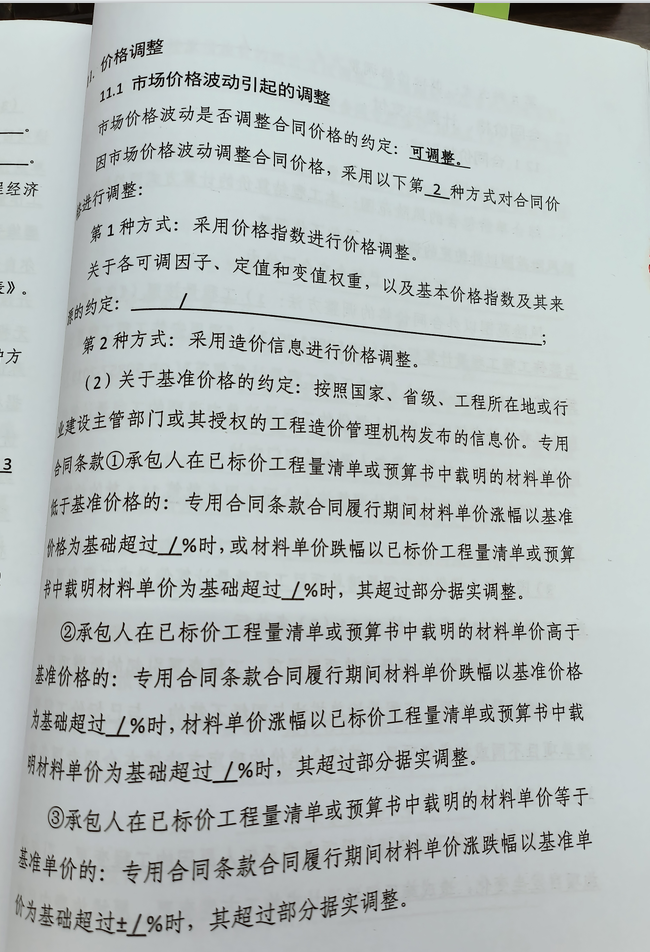 11. 价格调整
11.1 市场价格波动引起的调整
市场价格波动是否调整合同价格的约定：可调整。
因市场价格波动调整合同价格，采用以下第 2 种方式对合同价
格进行调整：
第 1 种方式：采用价格指数进行价格调整。
关于各可调因子、定值和变值权重，以及基本价格指数及其来
源的约定： / ；
第 2 种方式：采用造价信息进行价格调整。
（2）关于基准价格的约定：按照国家、省级、工程所在地或行
业建设主管部门或其授权的工程造价管理机构发布的信息价。专用
合同条款①承包人在已标价工程量清单或预算书中载明的材料单价
低于基准价格的：专用合同条款合同履行期间材料单价涨幅以基准
价格为基础超过 / %时，或材料单价跌幅以已标价工程量清单或预算
书中载明材料单价为基础超过 / %时，其超过部分据实调整。
②承包人在已标价工程量清单或预算书中载明的材料单价高于
基准价格的：专用合同条款合同履行期间材料单价跌幅以基准价格
为基础超过 / %时，材料单价涨幅以已标价工程量清单或预算书中载
明材料单价为基础超过 / %时，其超过部分据实调整。
③承包人在已标价工程量清单或预算书中载明的材料单价等于
基准单价的：专用合同条款合同履行期间材料单价涨跌幅以基准单
价为基础超过± / %时，其超过部分据实调整。
。
。
程经济
》。
方
3